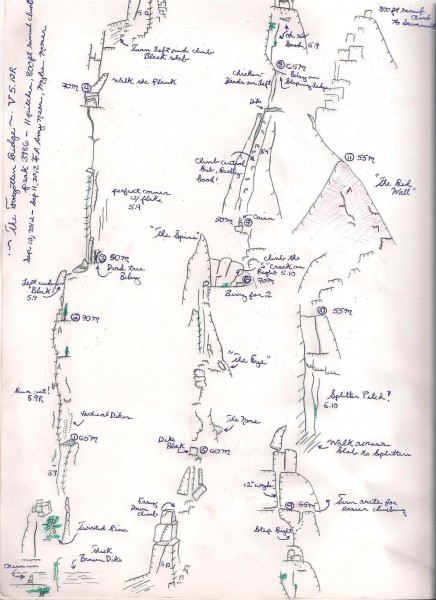 ~ The Forgotten Bridge ~ V 5.10R
peak 3986 - 11 pitches, 800ft scramble climb
Sep 10, 2012 - Sep 11, 2012 F.A. Amy Ness, Myles Moser
Turn left and climb
Black slab
④
70M
Walk the Plank
perfect corner
w/ flake
5.9
③ 50M
Dead tree
Belay
Left under
Block!
5.9
② 70M
Run out!
5.9R
Vertical Dikes
① 65M
5.9
Twisted Pine
Thick
Brown Dike
Cairn
5.9
⑧ 65M
Belay on
Sloping ledge
chicken
heads on left
Dike
5.9
Climb central
Rib, Really
Good!
50M ⑦
Cairn
"The Spine"
climb the
"S" Crack on
Right 5.10
⑥
70M
Bivy for 2
"The Eye"
The Nose
Dike
Block
⑤ 60M
Easy
Down
climb
5.9
800ft scramble
Climb
To Summit
⑪ 55M
"The Red
Wall"
⑩ 55M
Splitter Pitch!
5.10
Walk across
Slab to Splitters
12"
⑨ 55M
Turn arete for
easier climbing
Step Right